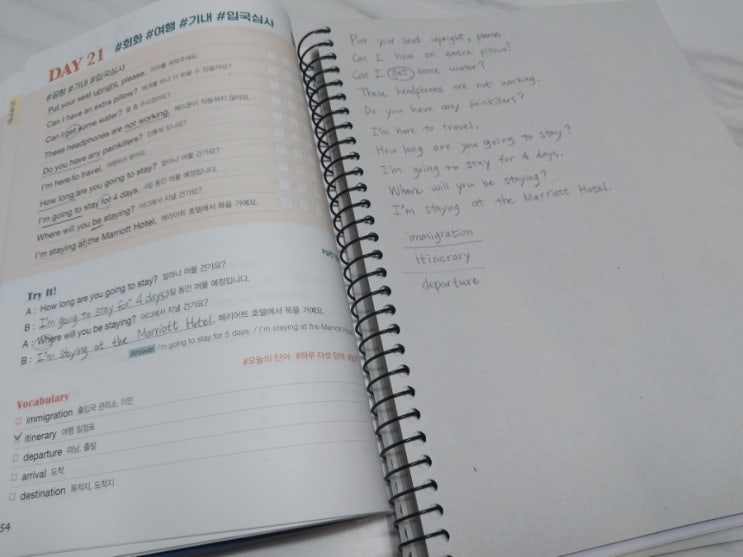 DAY 21 #회화 #여행 #기내 #입국심사
#공항 #기내 #입국심사
Put your seat upright, please. 의자를 세워주세요.
Can I have an extra pillow? 베개를 하나 더 받을 수 있을까요?
Can I get some water? 물 좀 주시겠어요?
These headphones are not working. 헤드폰이 작동하지 않아요.
Do you have any painkillers? 진통제 있나요?
I'm here to travel. 여행하러 왔어요.
How long are you going to stay? 얼마나 머물 건가요?
I'm going to stay for 4 days. 4일 동안 머물 예정입니다.
Where will you be staying? 어디에서 지낼 건가요?
I'm staying at the Marriott Hotel. 메리어트 호텔에서 묵을 거예요.
Try It!
A : How long are you going to stay? 얼마나 머물 건가요?
B : I'm going to stay for 4 days 5일 동안 머물 예정입니다.
A : Where will you be staying? 어디에서 지낼 건가요?
B : I'm staying at the Marriott Hotel. 메리어트 호텔에서 묵을 거예요.
Answer I'm going to stay for 5 days. / I'm staying at the Marriott
#오늘의 단어 #하루 다섯 단어
Vocabulary
immigration 출입국 관리소, 이민
itinerary 여행 일정표
departure 떠남, 출발
arrival 도착
destination 목적지, 도착지
54
Put your seat upright, please.
Can I have an extra pillow?
Can I get some water?
These headphones are not working.
Do you have any painkillers?
I'm here to travel.
How long are you going to stay?
I'm going to stay for 4 days.
Where will you be staying?
I'm staying at the Marriott Hotel.
immigration
itinerary
departure